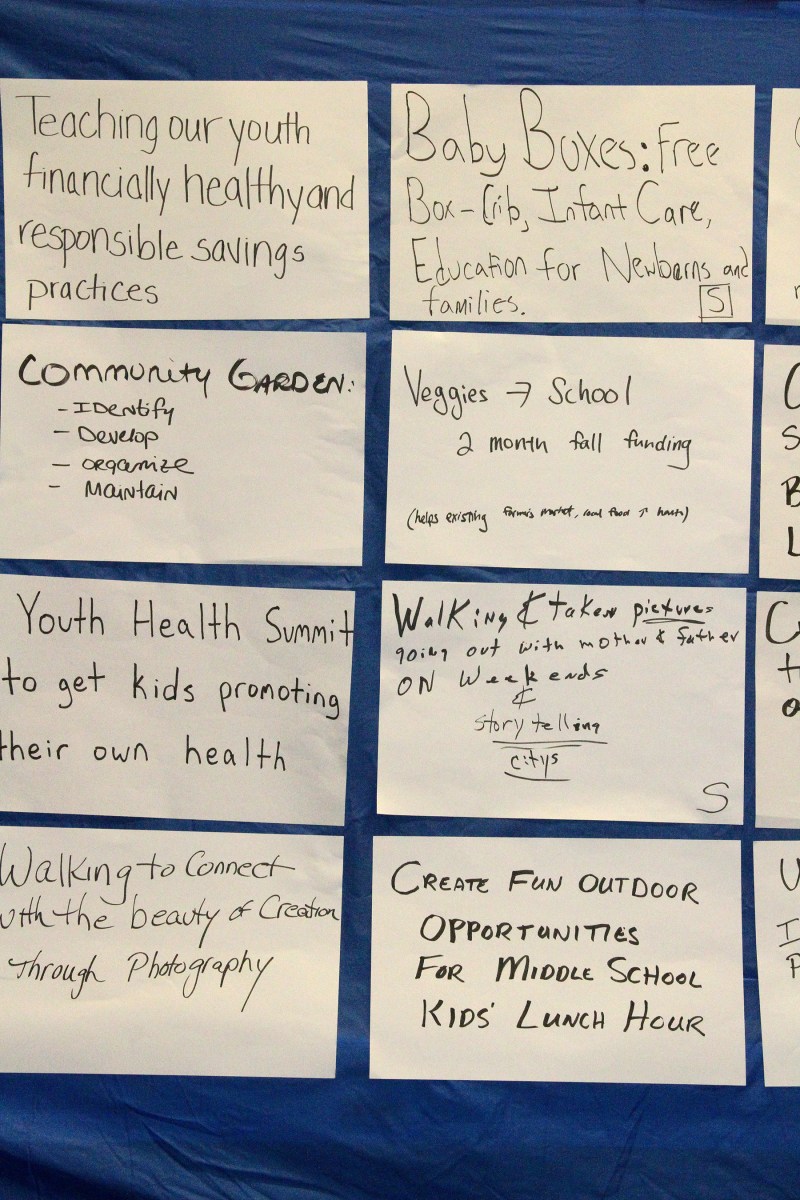 Teaching our youth
financially healthy and
responsible savings
practices
Baby Boxes: Free
Box-Crib, Infant Care,
Education for Newborns and
families.
S
Community Garden:
- Identify
- Develop
- organize
- Maintain
Veggies → School
2 month fall funding
(helps existing farmers market, local food ↑ health)
Youth Health Summit
to get kids promoting
their own health
Walking & taken pictures
going out with mother & father
ON Weekends
&
story telling
citys
S
Walking to Connect
with the beauty of Creation
Through Photography
Create Fun Outdoor
Opportunities
For Middle School
Kids' Lunch Hour